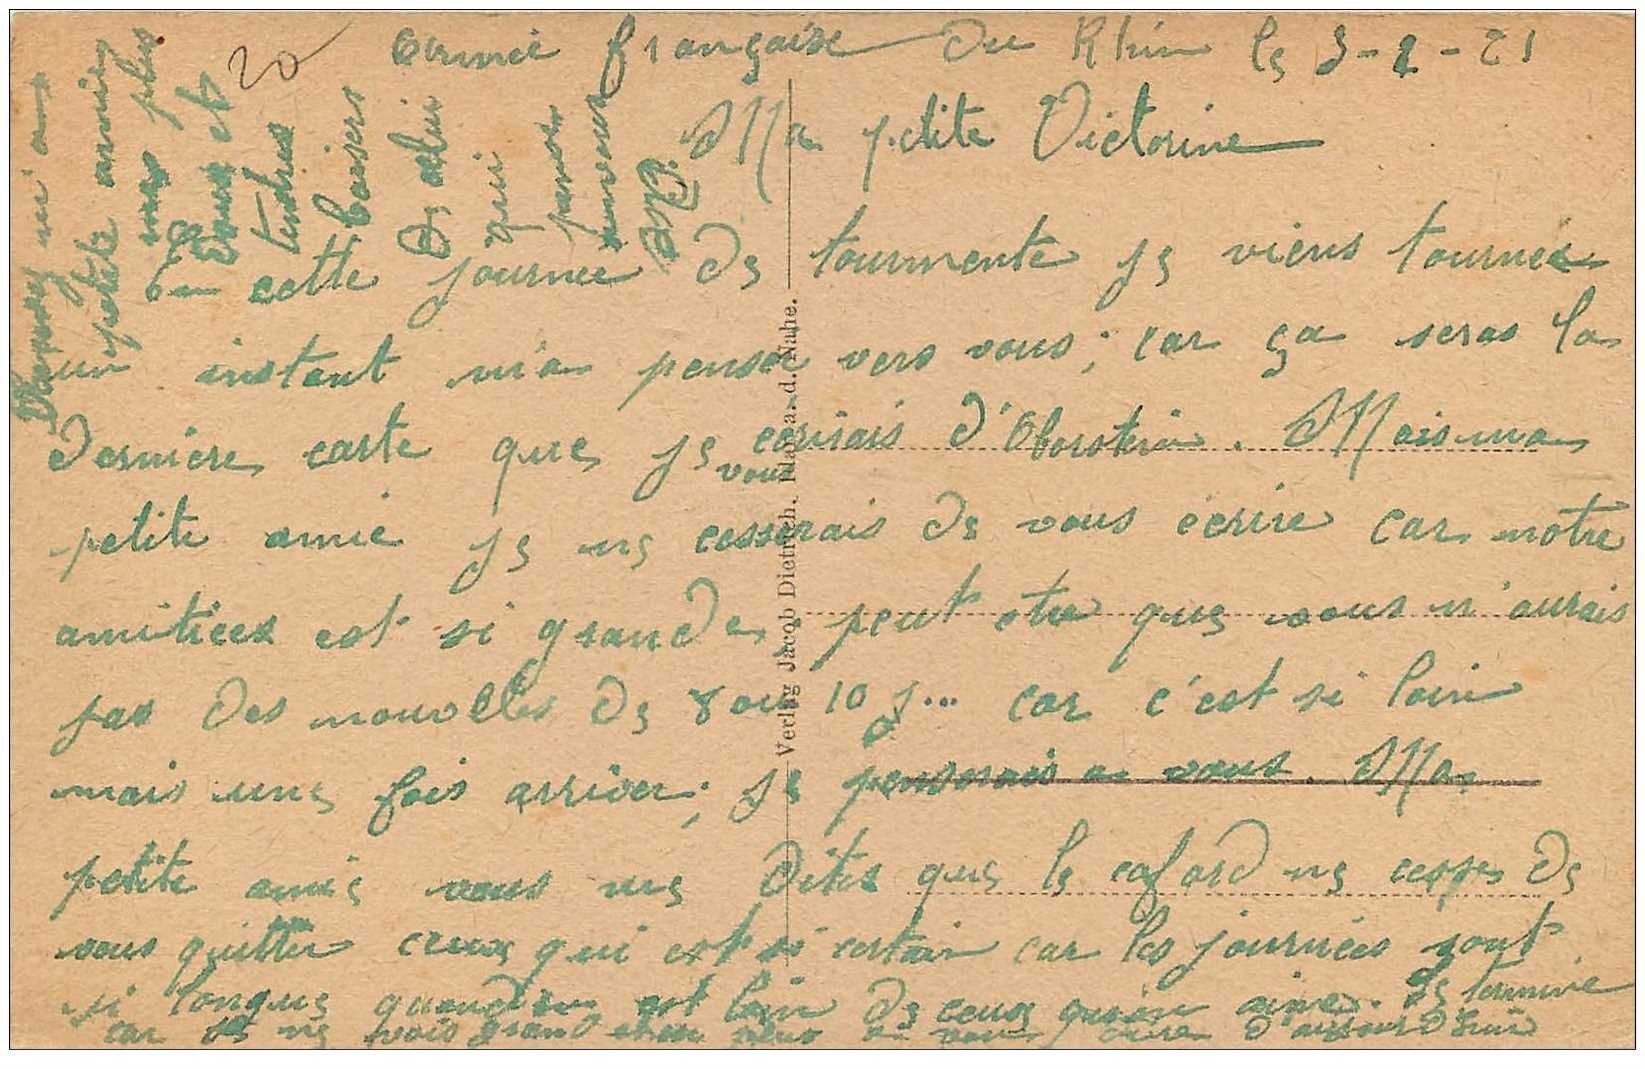 20
Armée française du Rhin le 3-2-21
Ma petite Victorine
En cette journee de tourmente je viens tournee
un instant m'a pensée vers vous; car ça seras la
derniere carte que je vous ecrirais d'Oberstein. Mais ma
petite amie je ne cesserais de vous écrire car notre
amitiées est si grande, peut etre que vous n'aurais
pas des nouvelles de 8 ou 10 j... car c'est si loin
mais une fois arriver; je penserais a vous. Ma
petite amie vous me dites que le cafard ne cesse de
vous quitter ceux qui est si certain car les journées sont
si longue quand on est loin de ceux qu'on aime. Je termine
car je ne vois grand chose plus a vous dire d'aujourd'hui
Recevez m'a
petite amie
mes plus
doux et
tendres
baisers
De celui
qui
pense
à vous
Verlag Jacob Dietrich. Idar a. d. Nahe.